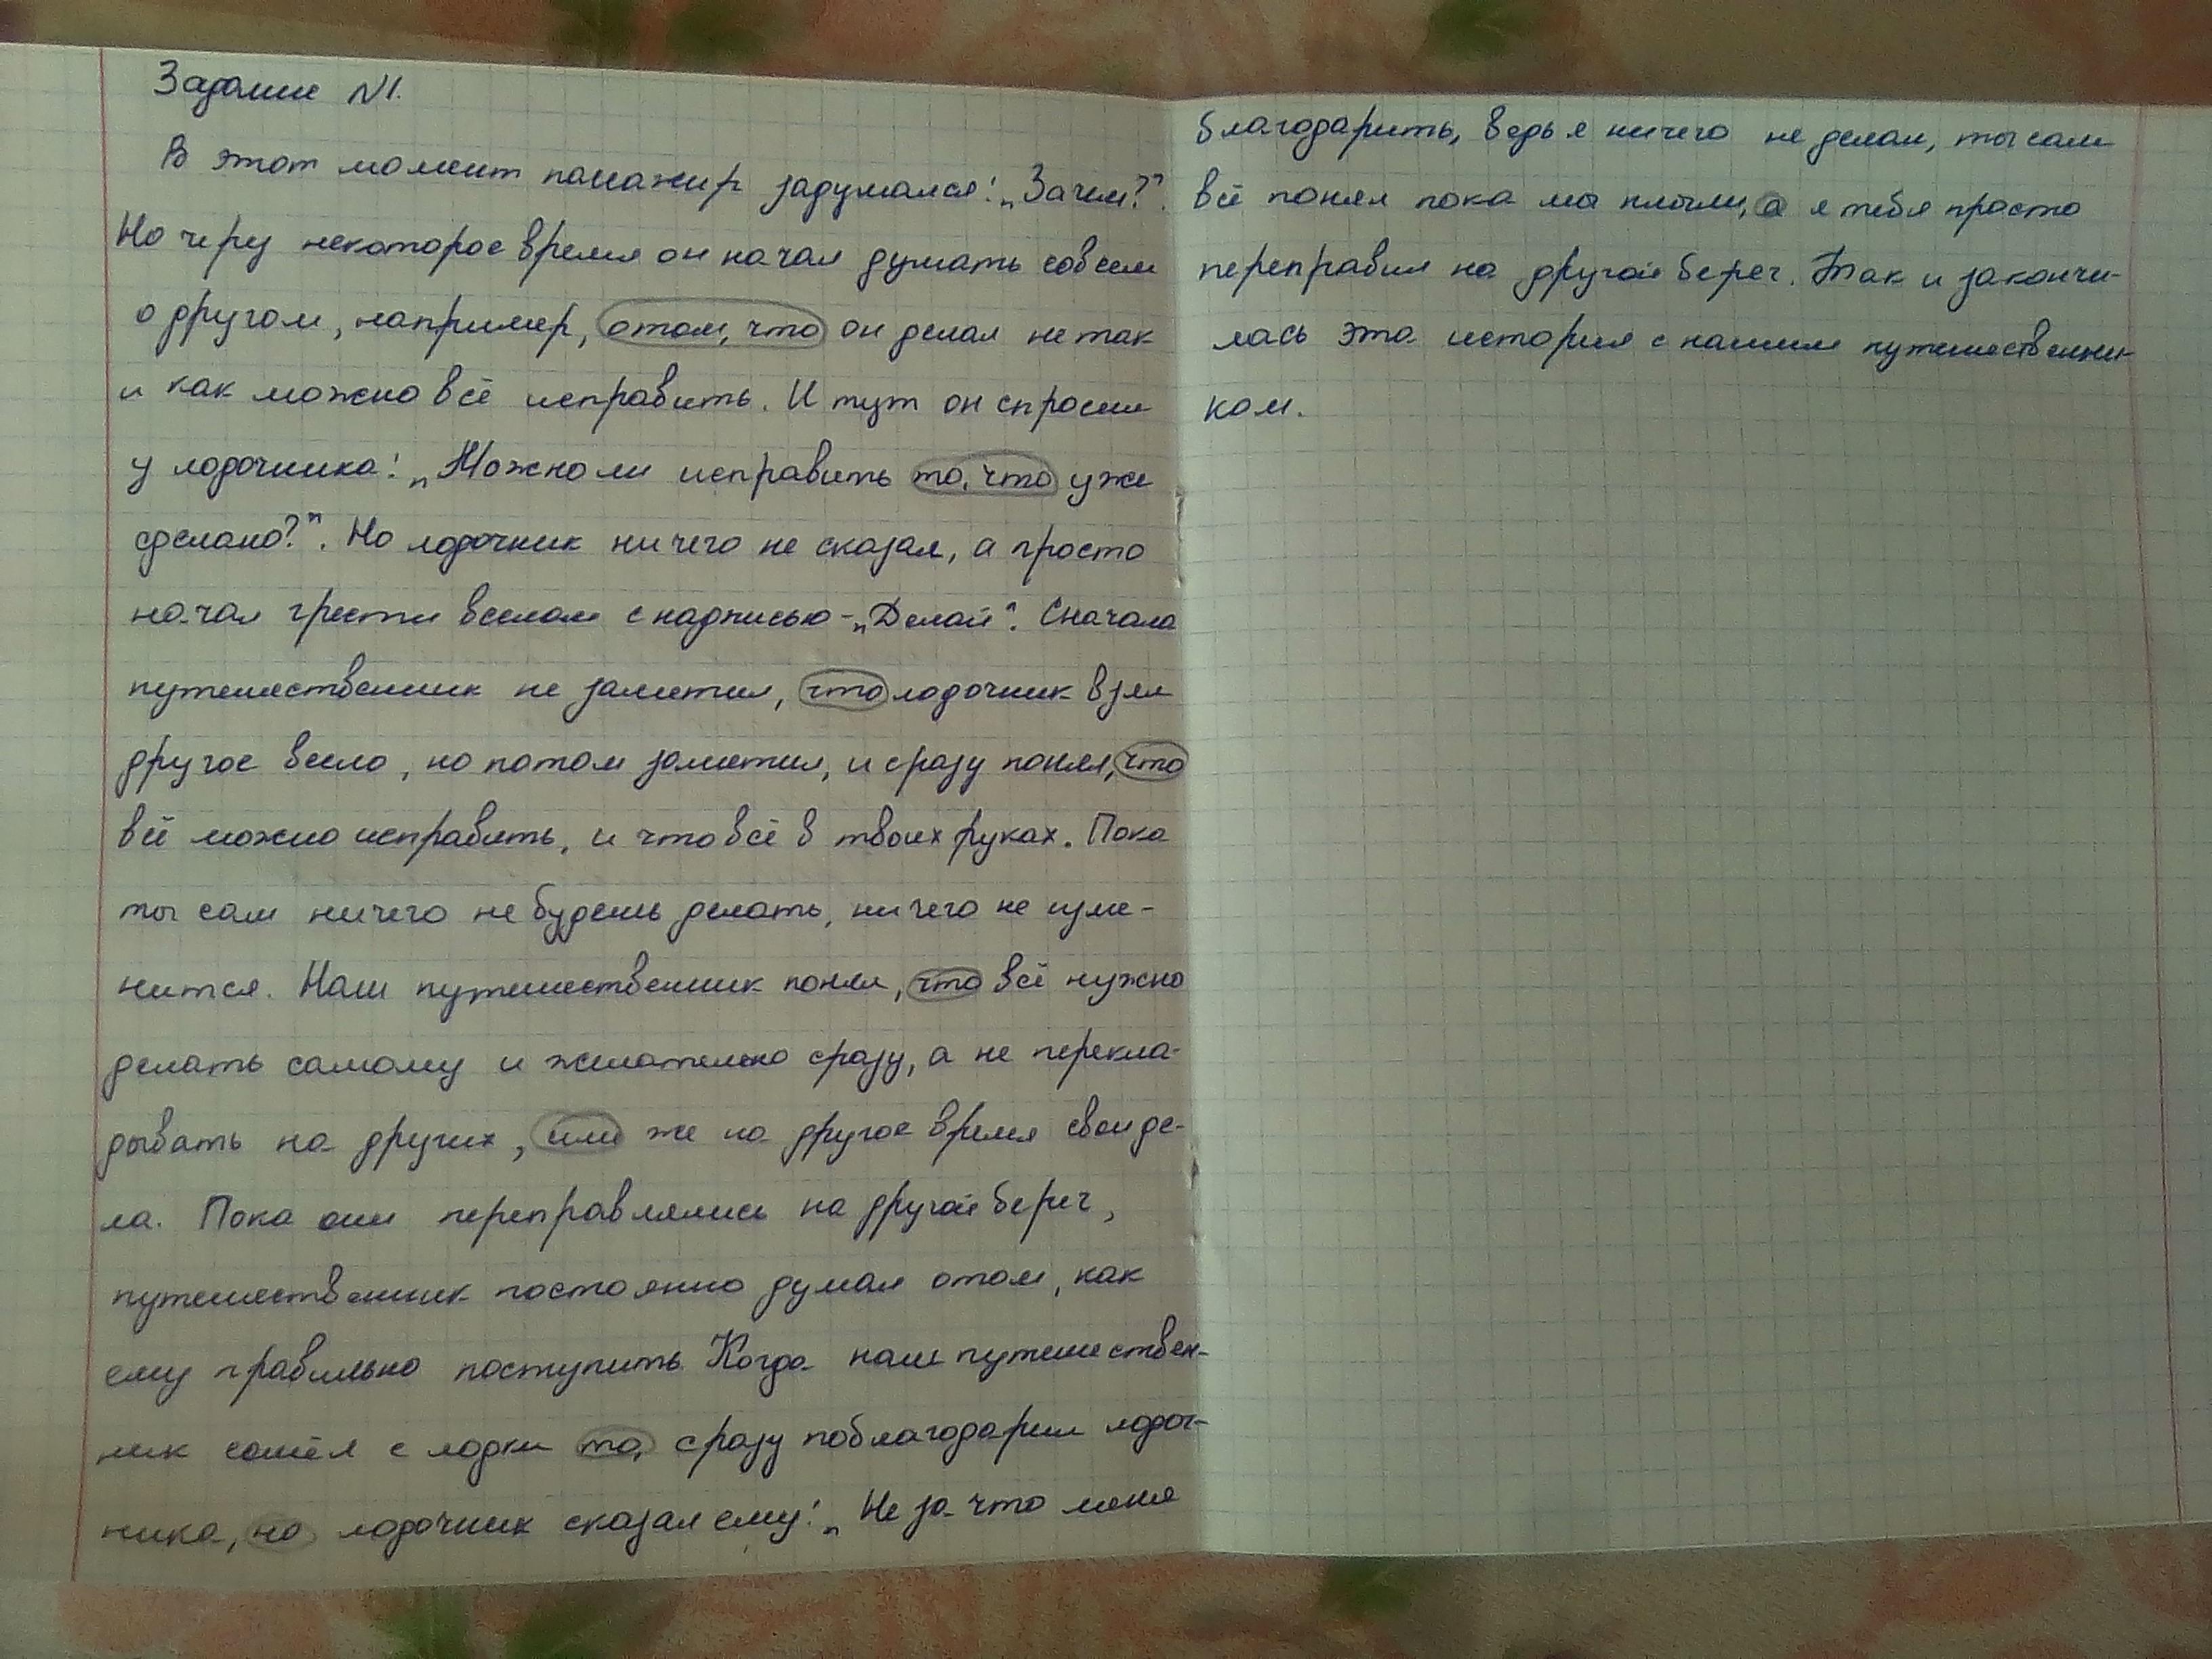 Задание №1.
В этот момент пассажир задумался: „Зачем?".
Но через некоторое время он начал думать совсем
о другом, например, о том, что он делал не так
и как можно всё исправить. И тут он спросил
у лодочника: „Можно ли исправить то, что уже
сделано?". Но лодочник ничего не сказал, а просто
начал грести веслом с надписью - „Делай". Сначала
путешественник не заметил, что лодочник взял
другое весло, но потом заметил, и сразу понял, что
всё можно исправить, и что всё в твоих руках. Пока
ты сам ничего не будешь делать, ничего не изме-
нится. Наш путешественник понял, что всё нужно
делать самому и желательно сразу, а не перекла-
дывать на других, или же на другое время свои де-
ла. Пока они переправлялись на другой берег,
путешественник постоянно думал о том, как
ему правильно поступить. Когда наш путешествен-
ник сошёл с лодки то, сразу поблагодарил лодоч-
ника, но лодочник сказал ему: „Не за что меня
благодарить, ведь я ничего не делал, ты сам
всё понял пока мы плыли, а я тебя просто
переправил на другой берег. Так и закончи-
лась эта история с нашим путешественни-
ком.